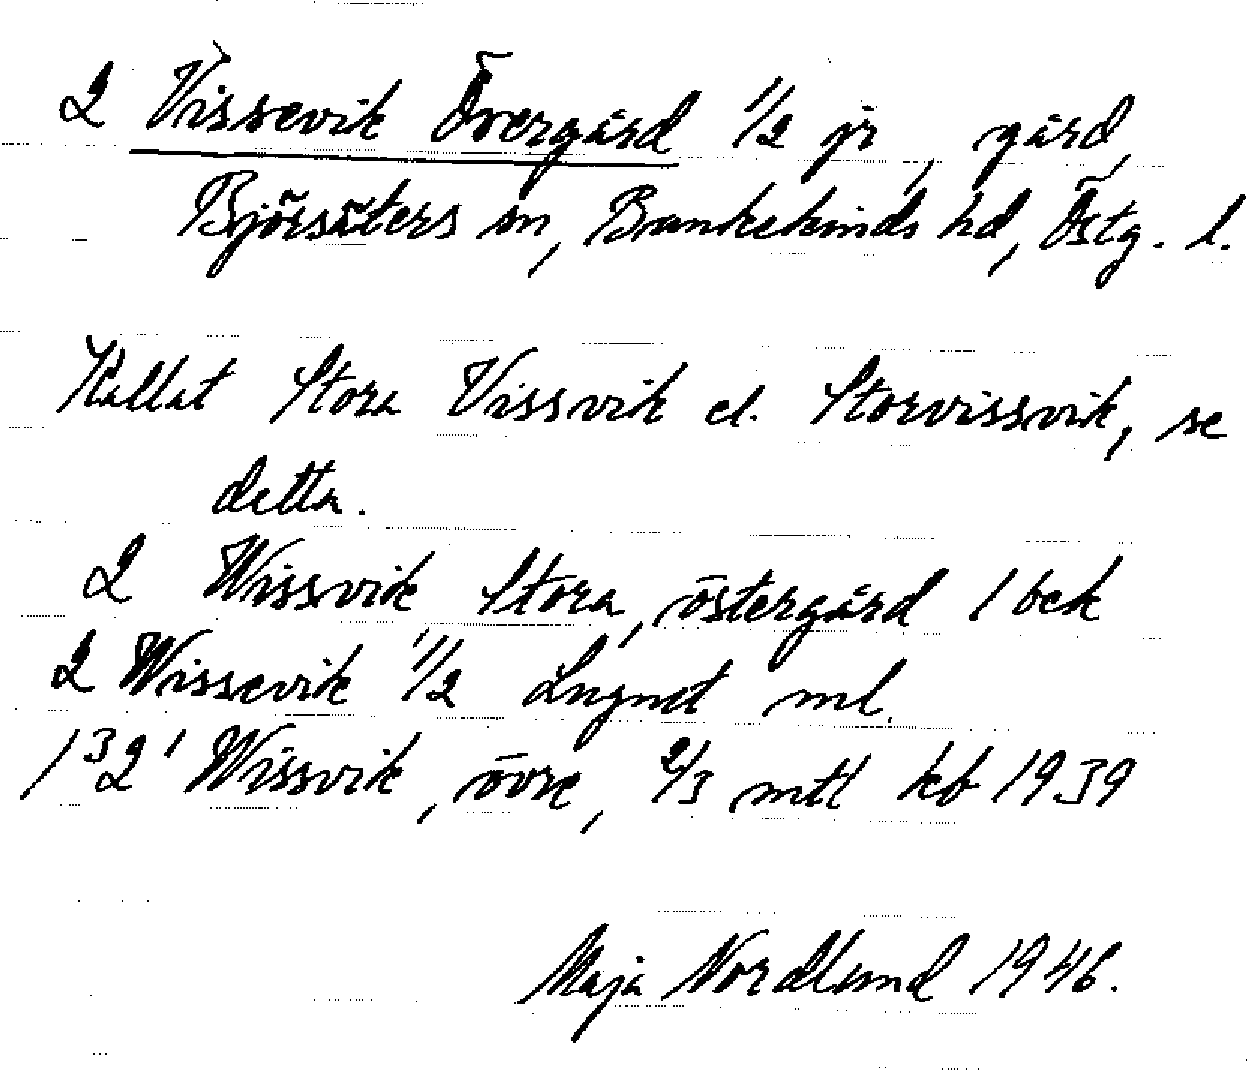 2 Vissevik Övergård 1/2 jr, gård,
Björsäters sn, Bankekinds hd, Östg. l.
Kallat Stora Vissvik el. Storvissvik, se
detta.
2 Wissvik Stora, östergård 1 bek
2 Wissevik 1/2 Lugnet ml.
1 3 2 1 Wissvik, övre, 2/3 mtl kb 1939
Maja Nordlund 1946.